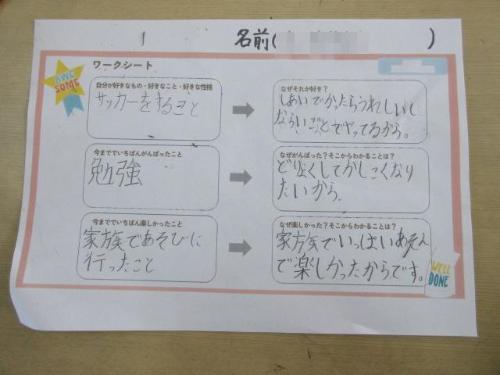 1 名前( )
AWE SOME
ワークシート
自分が好きなもの・好きなこと・好きな性格
サッカーをすること
なぜそれが好き?
しあいでかったらうれしいし
ならいごとでヤッてるから。
今まででいちばんがんばったこと
勉強
なぜがんばった?そこからわかることは?
どりょくしてかしこくなり
たいから。
今まででいちばん楽しかったこと
家族であそびに
行ったこと
なぜ楽しかった?そこからわかることは?
家族でいっぱいあそん
で楽しかったからです。
WELL
DONE